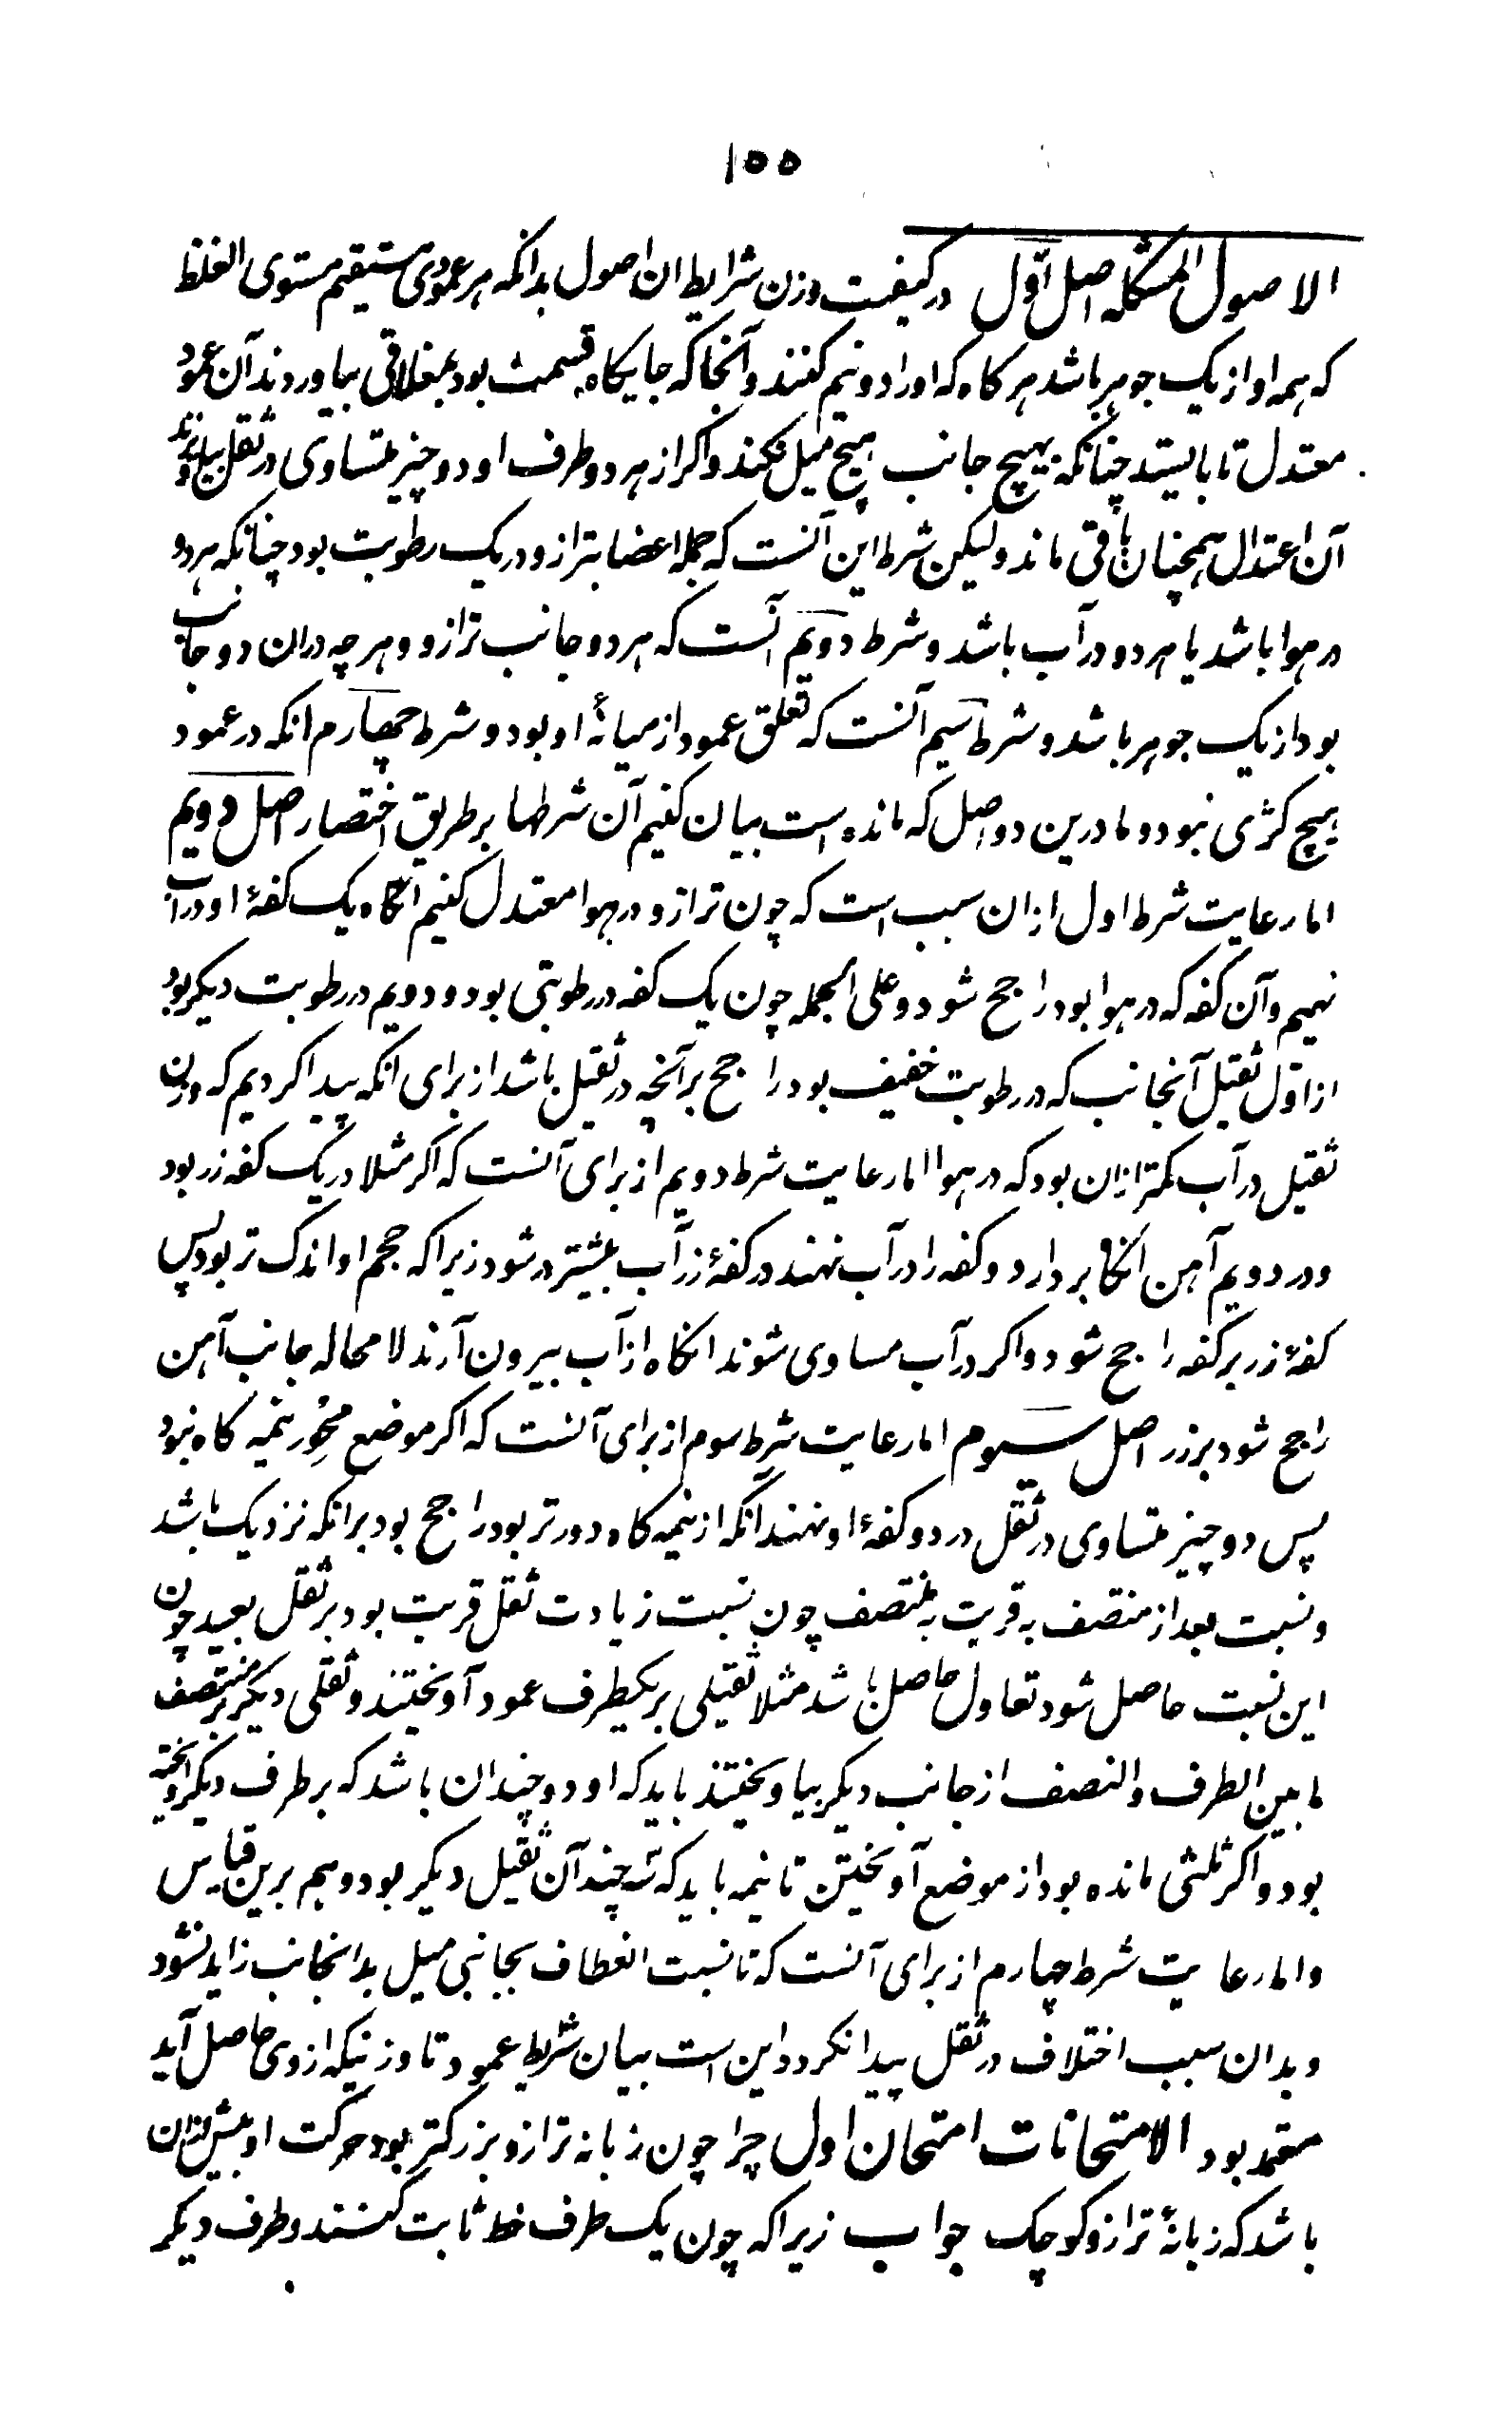 ۱۵۵
الاصول المشکله اصل اول در کیفیت وزن شرایط ان اصول بدانکه هر عمودی مستقیم مستوی الغلظ
که همه او از یک جوهر باشد هر کاه که او را دو نیم کنند و آنجا که جایکاه قسمت بود بمغلاقی بیاورند آن عمود
معتدل تا بایستد چنانکه بهیچ جانب هیچ میل نکند و اکر از هر دو طرف او دو چیز متساوی در ثقل بیاویزند
آن اعتدال همچنان باقی ماند ولیکن شرط این آنست که جمله اعضا ترازو در یک رطوبت بود چنانکه هر دو
در هوا باشد یا هر دو در آب باشد و شرط دویم آنست که هر دو جانب ترازو و هر چه دران دو جانب
بود از یک جوهر باشد و شرط سیم آنست که تعلق عمود از میانهٔ او بود و شرط چهارم انکه در عمود
هیچ کژی نبود و ما درین دو اصل که مانده است بیان کنیم آن شرطها بر طریق اختصار اصل دویم
اما رعایت شرط اول ازان سبب است که چون ترازو در هوا معتدل کنیم آنکاه یک کفهٔ او در آب
نهیم و آن کفه که در هوا بود راجح شود و علی الجمله چون یک کفه در رطوبتی بود و دویم در رطوبت دیکر بود
از اول ثقیل آنجانب که در رطوبت خفیف بود راجح بر آنچه در ثقیل باشد از برای انکه پیدا کردیم که وزن
ثقیل در آب کمتر ازان بود که در هوا اما رعایت شرط دویم از برای آنست که اکر مثلا در یک کفه زر بود
و در دویم آهن انکا بر دارد و کفه را در آب نهند در کفهٔ زر آب بیشتر در شود زیرا که حجم او اندک تر بود پس
کفهٔ زر بر کفه راجح شود و اکر در آب مساوی شوند انکاه از آب بیرون آرند لا محاله جانب آهن
راجح شود بر زر اصل سیوم اما رعایت شرط سوم از برای آنست که اکر موضع محور نیمه کاه نبود
پس دو چیز متساوی در ثقل در دو کفهٔ او نهند انکه از نیمه کاه دورتر بود راجح بود بر انکه نزدیک باشد
و نسبت بعد از منتصف به قربت بمنتصف چون نسبت زیادت ثقل قریب بود بر ثقل بعید چون
این نسبت حاصل شود تعادل حاصل باشد مثلا ثقیلی بر یکطرف عمود آویختند و ثقلی دیکر بر منتصف
ما بین الطرف والنصف از جانب دیکر بیاویختند باید که او دو چندان باشد که بر طرف دیکر آویخته
بود و اکر ثلثی مانده بود از موضع آویختن تا نیمه باید که سه چند آن ثقیل دیکر بود و هم برین قیاس
و اما رعایت شرط چهارم از برای آنست که تا نسبت انعطاف بجانبی میل بدانجانب زاید نشود
و بدان سبب اختلاف در ثقل پیدا نکردد این است بیان شرایط عمود تا وزنیکه ازوی حاصل آید
معتمد بود الامتحانات امتحان اول چرا چون زبانه ترازو بزرکتر بود حرکت او بیش ازان
باشد که زبانهٔ ترازو کوچک جواب زیرا که چون یک طرف خط ثابت کنند و طرف دیکر